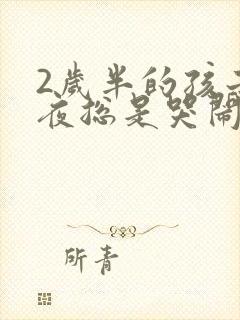 2歲半的孩子
夜總是哭鬧
所青